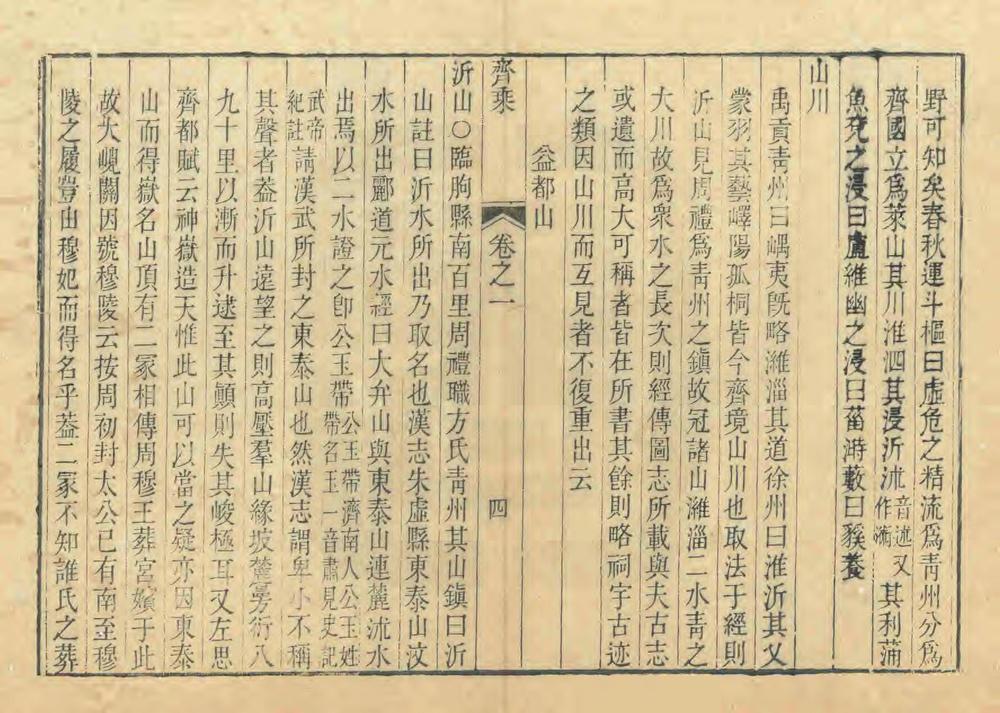 野可知矣春秋運斗樞曰虛危之精流爲青州分爲
齊國立爲萊山其川淮泗其浸沂沭音述又作術其利蒲
魚兗之浸曰盧維幽之浸曰菑溡藪曰豯養
山川
禹貢青州曰嵎夷旣略濰淄其道徐州曰淮沂其乂
蒙羽其藝嶧陽孤桐皆今齊境山川也取法于經則
沂山見周禮爲青州之鎮故冠諸山濰淄二水青之
大川故爲衆水之長次則經傳圖志所載與夫古志
或遺而高大可稱者皆在所書其餘則略祠宇古迹
之類因山川而互見者不復重出云
益都山
齊乘
卷之一
四
沂山○臨朐縣南百里周禮職方氏青州其山鎮曰沂
山註曰沂水所出乃取名也漢志朱虛縣東泰山汶
水所出酈道元水經曰大弁山與東泰山連麓沭水
出焉以二水證之卽公玉帶公玉帶濟南人公玉姓帶名玉一音肅見史記
武帝紀註請漢武所封之東泰山也然漢志謂卑小不稱
其聲者葢沂山遠望之則高壓羣山緣坡麓旁衍八
九十里以漸而升逮至其顛則失其峻極耳又左思
齊都賦云神嶽造天惟此山可以當之疑亦因東泰
山而得嶽名山頂有二冢相傳周穆王葬宮嬪于此
故大峴關因號穆陵云按周初封太公已有南至穆
陵之履豈由穆妃而得名乎葢二冢不知誰氏之葬